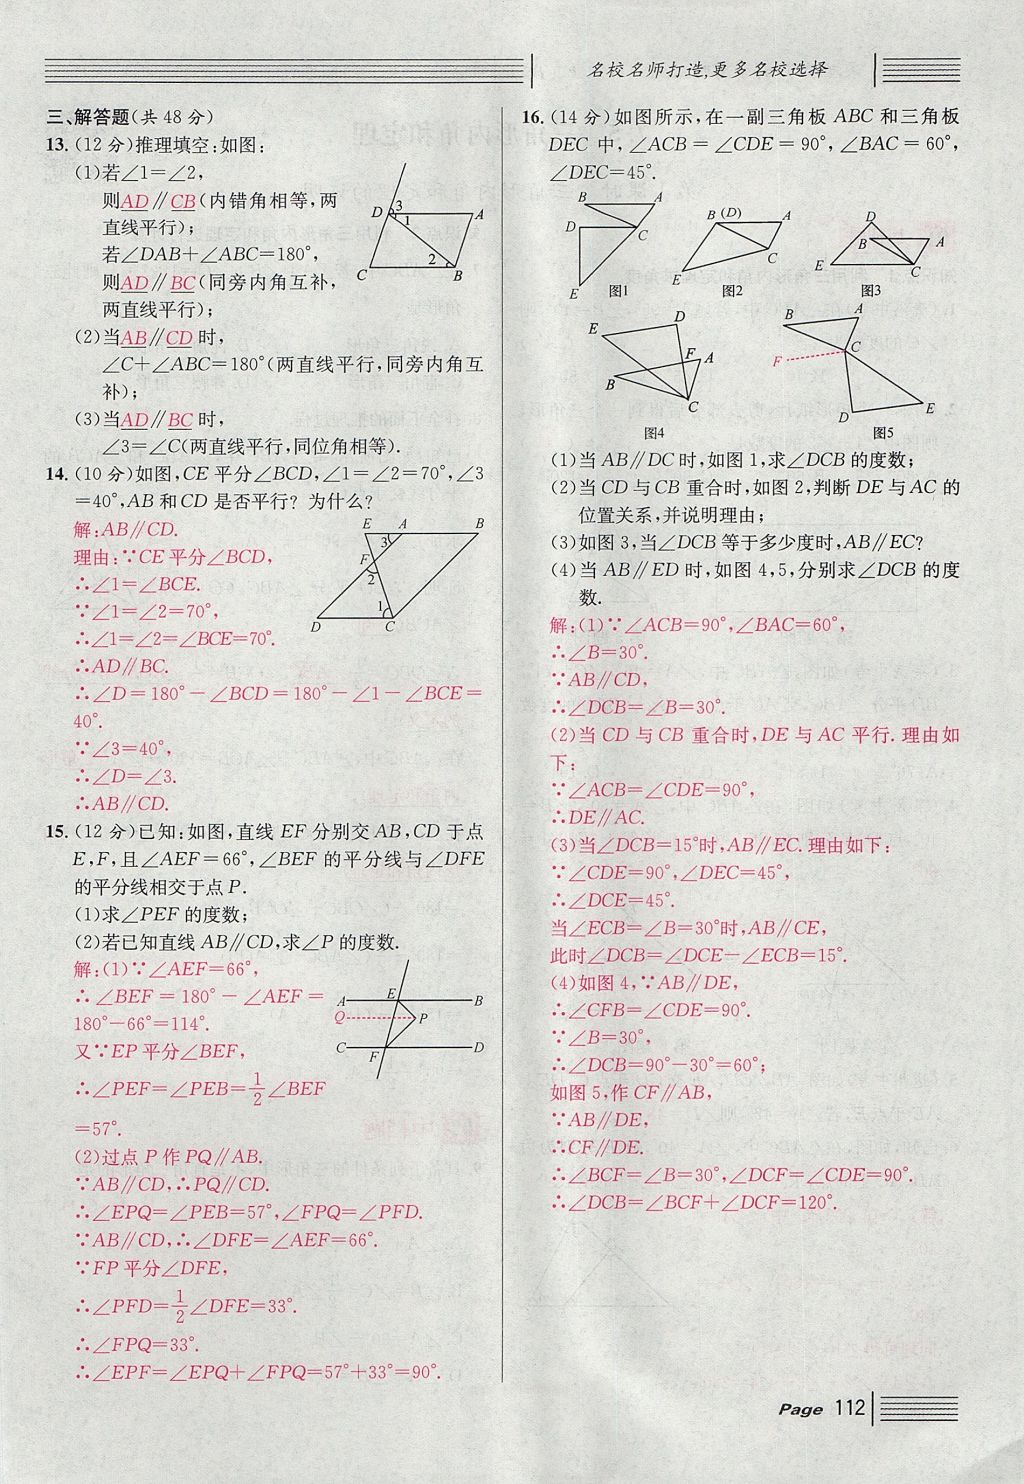 名校名师打造,更多名校选择
三、解答题(共48分)
13.(12分)推理填空:如图:
(1)若∠1=∠2,
则AD∥CB(内错角相等,两
直线平行);
若∠DAB+∠ABC=180°,
则AD∥BC(同旁内角互补,
两直线平行);
(2)当AB∥CD时,
∠C+∠ABC=180°(两直线平行,同旁内角互
补);
(3)当AD∥BC时,
∠3=∠C(两直线平行,同位角相等).
D 3 1 A
C 2 B
14.(10分)如图,CE平分∠BCD,∠1=∠2=70°,∠3
=40°,AB和CD是否平行?为什么?
解:AB∥CD.
理由:∵CE平分∠BCD,
∴∠1=∠BCE.
∵∠1=∠2=70°,
∴∠1=∠2=∠BCE=70°.
∴AD∥BC.
∴∠D=180°-∠BCD=180°-∠1-∠BCE=
40°.
∵∠3=40°,
∴∠D=∠3.
∴AB∥CD.
E A B
3
F
2
1
D C
15.(12分)已知:如图,直线EF分别交AB,CD于点
E,F,且∠AEF=66°,∠BEF的平分线与∠DFE
的平分线相交于点P.
(1)求∠PEF的度数;
(2)若已知直线AB∥CD,求∠P的度数.
解:(1)∵∠AEF=66°,
∴∠BEF=180°-∠AEF=
180°-66°=114°.
又∵EP平分∠BEF,
∴∠PEF=∠PEB=1/2∠BEF
=57°.
(2)过点P作PQ∥AB.
∵AB∥CD,∴PQ∥CD.
∴∠EPQ=∠PEB=57°,∠FPQ=∠PFD.
∵AB∥CD,∴∠DFE=∠AEF=66°.
∵FP平分∠DFE,
∴∠PFD=1/2∠DFE=33°.
∴∠FPQ=33°.
∴∠EPF=∠EPQ+∠FPQ=57°+33°=90°.
A E B
Q P
C F D
16.(14分)如图所示,在一副三角板ABC和三角板
DEC中,∠ACB=∠CDE=90°,∠BAC=60°,
∠DEC=45°.
B A
D C
E
图1
B (D) A
C
E
图2
D
B A
E C
图3
E D
F A
B
C
图4
B A
C
F
D E
图5
(1)当AB∥DC时,如图1,求∠DCB的度数;
(2)当CD与CB重合时,如图2,判断DE与AC的
位置关系,并说明理由;
(3)如图3,当∠DCB等于多少度时,AB∥EC?
(4)当AB∥ED时,如图4,5,分别求∠DCB的度
数.
解:(1)∵∠ACB=90°,∠BAC=60°,
∴∠B=30°.
∵AB∥CD,
∴∠DCB=∠B=30°.
(2)当CD与CB重合时,DE与AC平行.理由如
下:
∵∠ACB=∠CDE=90°,
∴DE∥AC.
(3)当∠DCB=15°时,AB∥EC.理由如下:
∵∠CDE=90°,∠DEC=45°,
∴∠DCE=45°.
当∠ECB=∠B=30°时,AB∥CE,
此时∠DCB=∠DCE-∠ECB=15°.
(4)如图4,∵AB∥DE,
∴∠CFB=∠CDE=90°.
∵∠B=30°,
∴∠DCB=90°-30°=60°;
如图5,作CF∥AB,
∵AB∥DE,
∴CF∥DE.
∴∠BCF=∠B=30°,∠DCF=∠CDE=90°.
∴∠DCB=∠BCF+∠DCF=120°.
Page 112